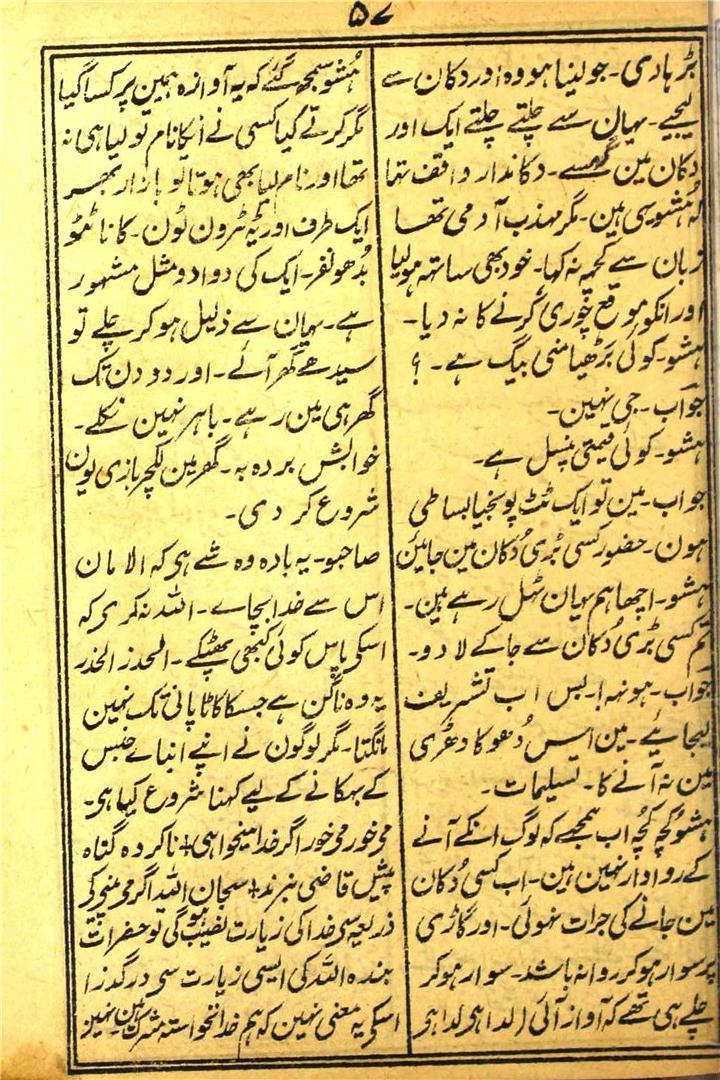 ۵۷
بڑھادی۔ جو لینا ہو وہ اور دکان سے
لیجیے۔ یہان سے چلتے چلتے ایک اور
دکان مین گھسے۔ دکاندار واقف تھا
کہ ہُشو یہی ہین۔ مگر مہذب آدمی تھا
زبان سے کچھ نہ کہا۔ خود بھی ساتھ ہولیا
اور انکو موقع چوری کرنے کا نہ دیا۔
ہشو۔ کوئی بڑھیا منی بیگ ہے۔ ؟
جواب۔ جی نہین۔
ہشو۔ کوئی قیمتی پنسل ہے۔
جواب۔ مین تو ایک ٹٹ پونجیا بساطی
ہون۔ حضور کسی بڑی دُکان مین جائین
ہشو۔ اچھا ہم یہان ٹہل رہے ہین۔
تم کسی بڑی دُکان سے جاکے لا دو۔
جواب۔ ہونہہ! بس اب تشریف
لیجائیے۔ مین اس دُھوکا دھڑی
مین نہ آنے کا۔ تسلیمات۔
ہشو کچھ کچھ اب سمجھے کہ لوگ انکے آنے
کے روادار نہین ہین۔ اب کسی دُکان
مین جانے کی جرات نہوئی۔ اور گاڑی
پر سوار ہوکر روانہ باشد۔ سوار ہوکر
چلے ہی تھے کہ آواز آئی (لدا ہو لدا ہو
ہُشو سمجھ گئے کہ یہ آوازہ ہمین پر کسا گیا
مگر کرتے کیا کسی نے انکا نام تو لیا ہی نہ
تھا اور نام لیا بھی ہوتا تو بازار بھر
ایک طرف اور یہ ٹٹرون ٹون۔ کانا ٹٹو
بُدھو نفر۔ ایک کی دوا دو مثل مشہور
ہے۔ یہان سے ذلیل ہوکر چلے تو
سیدھے گھر آئے۔ اور دو دن تک
گھر ہی مین رہے۔ باہر نہین نکلے۔
خوابش بردہ بہ۔ گھر مین لکچر بازی یون
شروع کر دی۔
صاحبو۔ یہ بادہ وہ شے ہی کہ الامان
اس سے خدا بچاے۔ اللہ نہ کری کہ
اسکی پاس کوئی کبھی پھٹکے۔ الحذر الحذر
یہ وہ ناگن ہے جسکا کاٹا پانی تک نہین
مانگتا۔ مگر لوگون نے اپنے ابناے جنس
کے بہکانے کے لیے کہنا شروع کیا ہی۔
می خور می خور اگر خدا میخواہی + ناکردہ گناہ
پیش قاضی نبرند + سبحان اللہ اگر می نوشی کی
ذریعہ سی خدا کی زیارت نصیب ہوگی تو حضرات
بندہ اللہ کی ایسی زیارت سی درگذرا
اسکی یہ معنی نہین کہ ہم خدانخواستہ مشرک ہین نہین